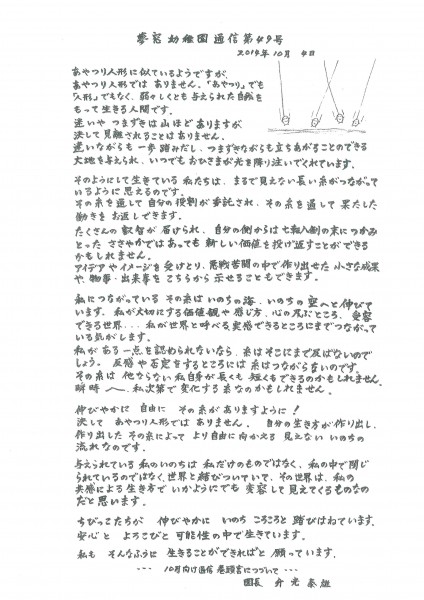 夢窓幼稚園通信第49号
2014年10月 4日
あやつり人形に似ているようですが、
あやつり人形では ありません。「あやつり」でも
「人形」でもなく、弱々しくとも与えられた自然を
もって生きる人間です。
迷いや つまずきは山ほどありますが
決して見離されることはありません。
迷いながらも一歩踏みだし、つまずきながらも立ちあがることのできる
大地を与えられ、いつでもおひさまが光を降り注いでくれています。
そのようにして生きている 私たちは、まるで見えない長い糸がつながって
いるように思えるのです。
その糸を通して自分の役割が委託され、その糸を通して 果たした
働きを お返しできます。
たくさんの叡智が届けられ、自分の側からは七転八倒の末につかみ
とった ささやかではあっても 新しい価値を投げ返すことができる
かもしれません。
アイデアやイメージを受けとり、悪戦苦闘の中で作り出せた 小さな成果
や、物事・出来事をこちらから示せることもできます。
私につながっている その糸は いのちの海、いのちの空へと伸びて
います。私が大切にする価値観や感じ方、心の及ぶところ、受容
できる世界...、私が世界と呼べる実感できるところにまでつながって
いる気がします。
私が ある一点を認められないなら、糸はそこにまで及ばないので
しょう。反感や否定をするところには糸はつながらないのです。
その糸は 他ならない私自身が長くも 短くもできるのかもしれません。
瞬時へ、私次第で変化する糸なのかもしれません。
伸びやかに 自由に その糸がありますように！
決して あやつり人形ではありません。自分の生き方が作り出し、
作り出した その糸によって より自由に向かえる 見えない いのちの
流れなのです。
与えられている 私のいのちは 私だけのものではなく、私の中で閉じ
られているのではなく、世界と結びついていて、その世界は、私の
共感による生き方で いかようにでも 変容して見えてくるものなの
だと思います。
ちびっこたちが 伸びやかに いのち ころころと 踊びはねています。
安心と よろこびと 可能性の中で生きています。
私も そんなふうに 生きることができればと 願っています。
--- 10月向け通信 巻頭言につづいて ---
園長 升光泰雄